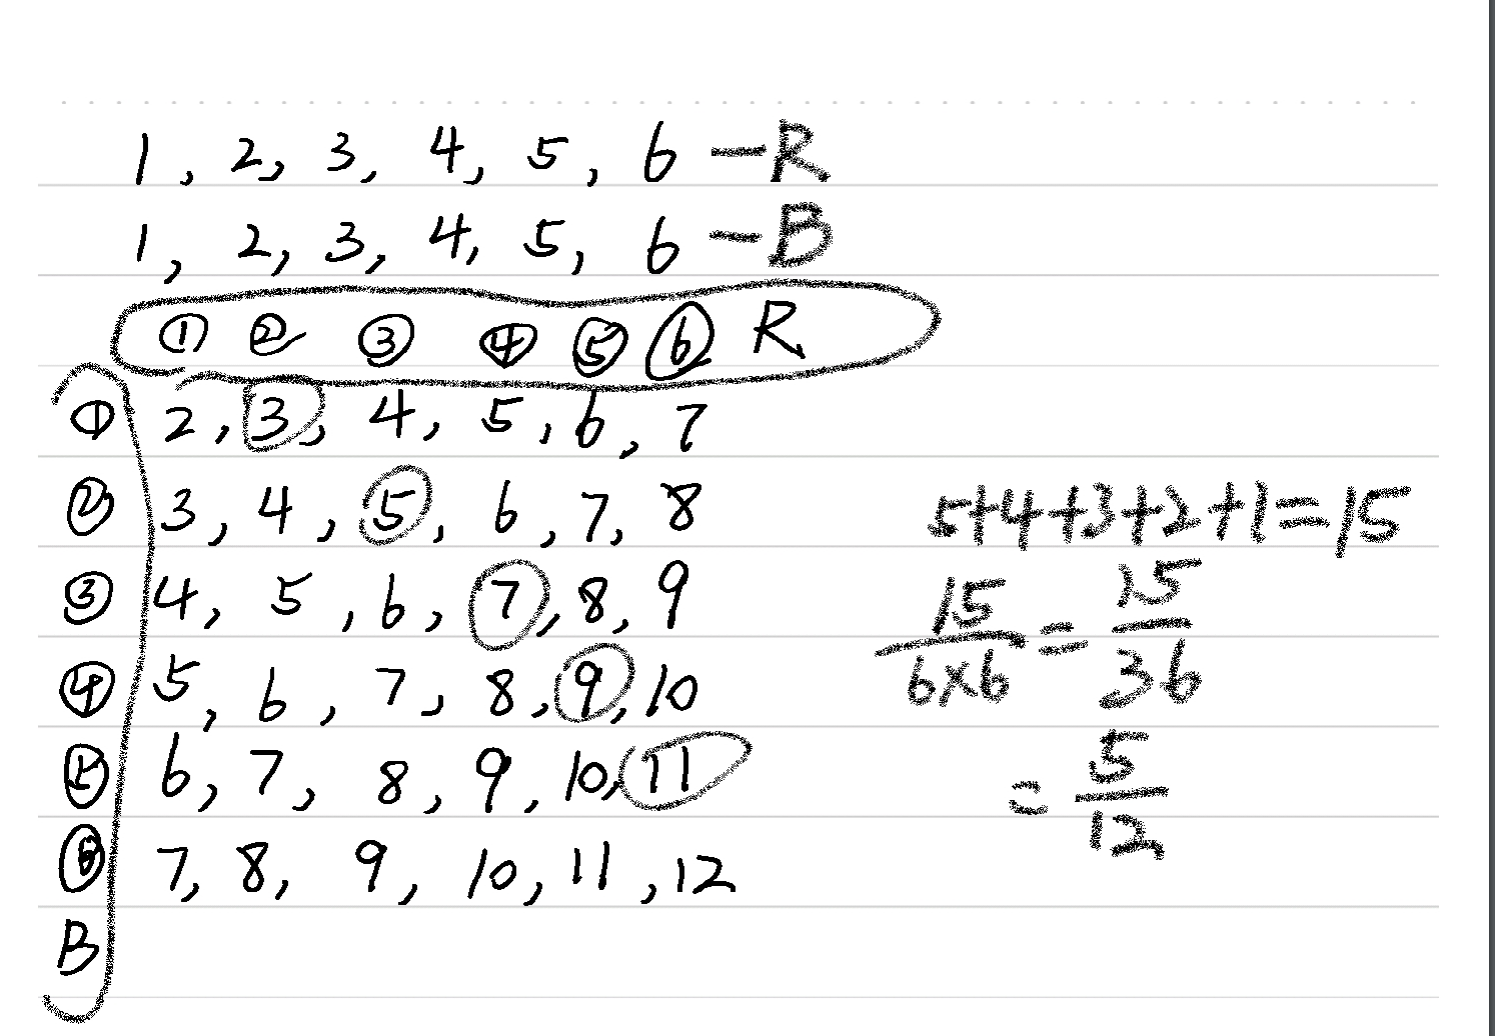 1, 2, 3, 4, 5, 6 - R
1, 2, 3, 4, 5, 6 - B
① ② ③ ④ ⑤ ⑥ R
① 2, 3, 4, 5, 6, 7
② 3, 4, 5, 6, 7, 8
③ 4, 5, 6, 7, 8, 9
④ 5, 6, 7, 8, 9, 10
⑤ 6, 7, 8, 9, 10, 11
⑥ 7, 8, 9, 10, 11, 12
B
5+4+3+2+1=15
15/6×6 = 15/36
= 5/12